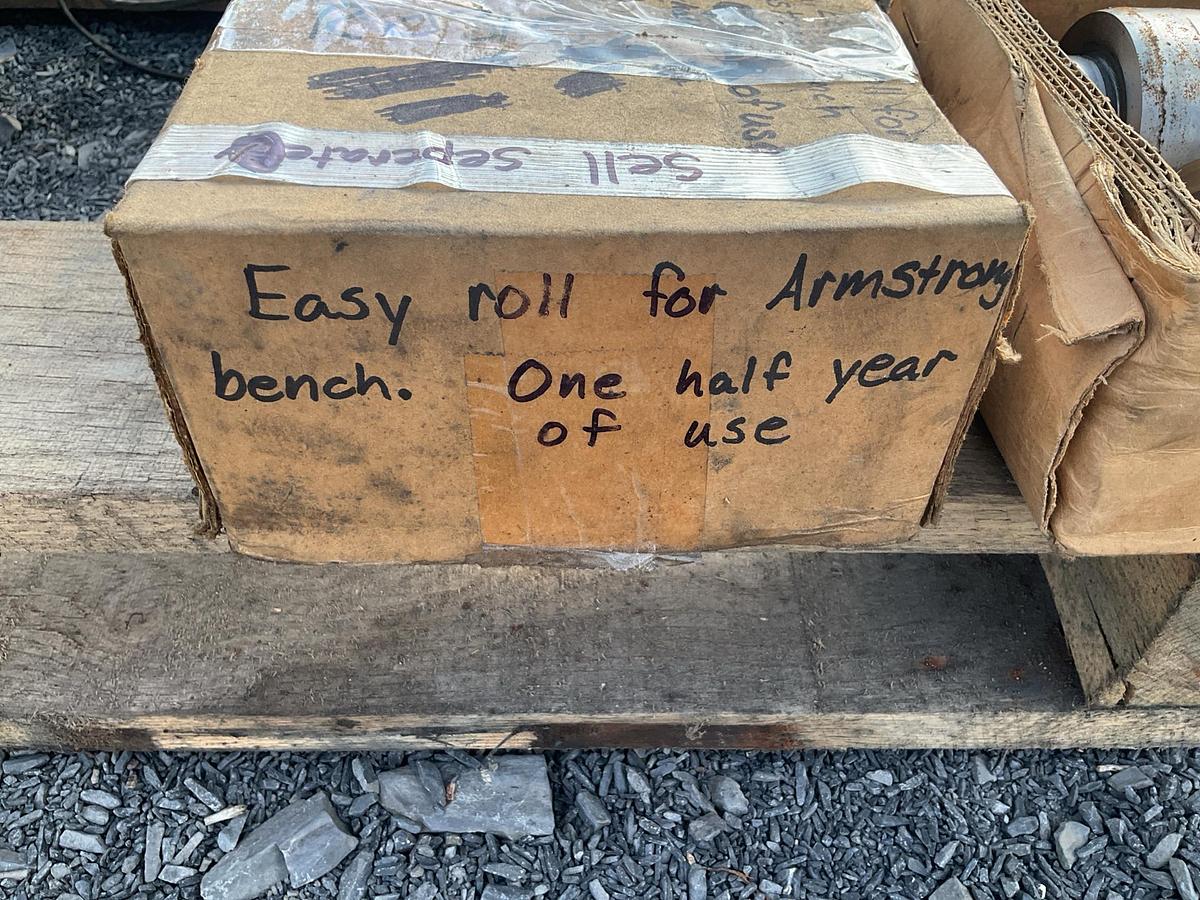 Sell Seperate
Easy roll for Armstrong
bench. One half year
of use